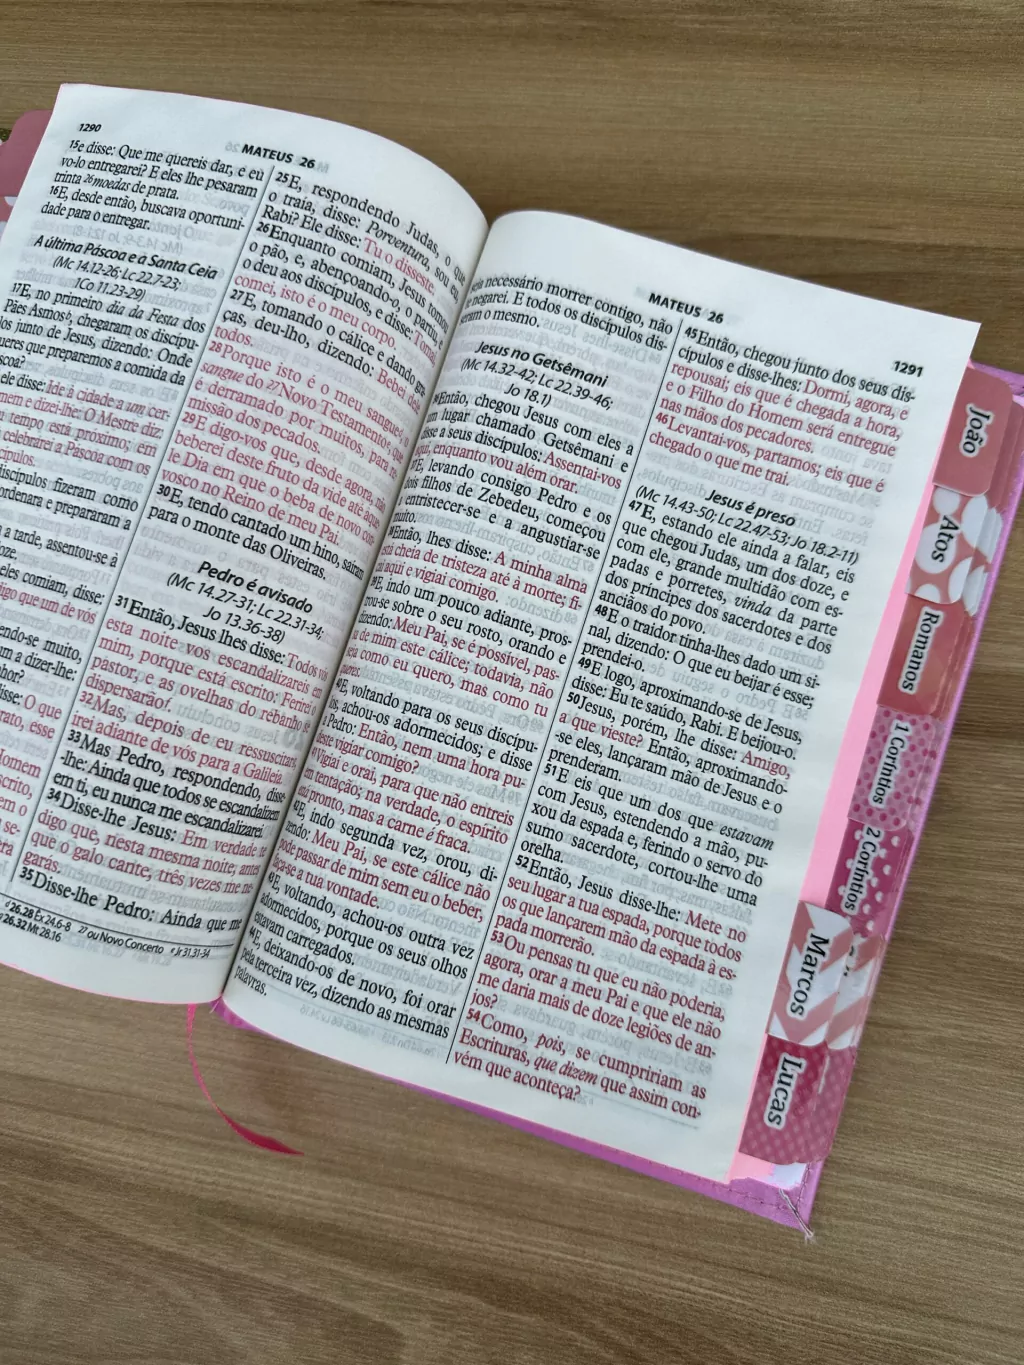 1290
MATEUS 26
15e disse: Que me quereis dar, e eu
vo-lo entregarei? E eles lhe pesaram
trinta 26moedas de prata.
16E, desde então, buscava oportuni-
dade para o entregar.
A última Páscoa e a Santa Ceia
(Mc 14.12-26; Lc 22.7-23;
1Co 11.23-29)
17E, no primeiro dia da Festa dos
Pães Asmos, chegaram os discípu-
los junto de Jesus, dizendo: Onde
queres que preparemos a comida da
disse: Ide à cidade a um cer-
homem e dizei-lhe: O Mestre diz:
tempo está próximo; em
celebrarei a Páscoa com os
discípulos fizeram como
ordenara e prepararam a
a tarde, assentou-se à
eles comiam, disse:
digo que um de vós
muito,
am a dizer-lhe:
disse: O que
prato, esse
25E, respondendo Judas, o que
o traía, disse: Porventura, sou eu,
Rabi? Ele disse: Tu o disseste.
26Enquanto comiam, Jesus tomou
o pão, e, abençoando-o, o partiu, e
o deu aos discípulos, e disse: Tomai,
comei, isto é o meu corpo.
27E, tomando o cálice e dando gra-
ças, deu-lho, dizendo: Bebei dele
todos.
28Porque isto é o meu sangue, o
sangue do 27Novo Testamento, que
é derramado por muitos, para re-
missão dos pecados.
29E digo-vos que, desde agora, não
beberei deste fruto da vide até àque-
le Dia em que o beba de novo con-
vosco no Reino de meu Pai.
30E, tendo cantado um hino, saíram
para o monte das Oliveiras.
Pedro é avisado
(Mc 14.27-31; Lc 22.31-34;
Jo 13.36-38)
31Então, Jesus lhes disse: Todos vós
esta noite vos escandalizareis em
mim, porque está escrito: Ferirei o
pastor, e as ovelhas do rebanho se
dispersarão.
32Mas, depois de eu ressuscitar,
irei adiante de vós para a Galileia.
33Mas Pedro, respondendo, disse-
-lhe: Ainda que todos se escandalizem
em ti, eu nunca me escandalizarei.
34Disse-lhe Jesus: Em verdade te
digo que, nesta mesma noite, antes
que o galo cante, três vezes me ne-
garás.
35Disse-lhe Pedro: Ainda que me
26.28 Êx 24.6-8 27 ou Novo Concerto e Jr 31.31-34
26.32 Mt 28.16
MATEUS 26
1291
seja necessário morrer contigo, não
te negarei. E todos os discípulos dis-
seram o mesmo.
Jesus no Getsêmani
(Mc 14.32-42; Lc 22.39-46;
Jo 18.1)
Então, chegou Jesus com eles a
um lugar chamado Getsêmani e
disse a seus discípulos: Assentai-vos
aqui, enquanto vou além orar.
E, levando consigo Pedro e os
dois filhos de Zebedeu, começou
a entristecer-se e a angustiar-se
muito.
Então, lhes disse: A minha alma
está cheia de tristeza até à morte; fi-
cai aqui e vigiai comigo.
E, indo um pouco adiante, pros-
trou-se sobre o seu rosto, orando e
dizendo: Meu Pai, se é possível, pas-
sa de mim este cálice; todavia, não
seja como eu quero, mas como tu
queres.
E, voltando para os seus discípu-
los, achou-os adormecidos; e disse
a Pedro: Então, nem uma hora pu-
deste vigiar comigo?
Vigiai e orai, para que não entreis
em tentação; na verdade, o espírito
está pronto, mas a carne é fraca.
E, indo segunda vez, orou, di-
zendo: Meu Pai, se este cálice não
pode passar de mim sem eu o beber,
faça-se a tua vontade.
E, voltando, achou-os outra vez
adormecidos, porque os seus olhos
estavam carregados.
E, deixando-os de novo, foi orar
pela terceira vez, dizendo as mesmas
palavras.
45Então, chegou junto dos seus dis-
cípulos e disse-lhes: Dormi, agora, e
repousai; eis que é chegada a hora,
e o Filho do Homem será entregue
nas mãos dos pecadores.
46Levantai-vos, partamos; eis que é
chegado o que me trai.
Jesus é preso
(Mc 14.43-50; Lc 22.47-53; Jo 18.2-11)
47E, estando ele ainda a falar, eis
que chegou Judas, um dos doze, e
com ele, grande multidão com es-
padas e porretes, vinda da parte
dos príncipes dos sacerdotes e dos
anciãos do povo.
48E o traidor tinha-lhes dado um si-
nal, dizendo: O que eu beijar é esse;
prendei-o.
49E logo, aproximando-se de Jesus,
disse: Eu te saúdo, Rabi. E beijou-o.
50Jesus, porém, lhe disse: Amigo,
a que vieste? Então, aproximando-
-se eles, lançaram mão de Jesus e o
prenderam.
51E eis que um dos que estavam
com Jesus, estendendo a mão, pu-
xou da espada e, ferindo o servo do
sumo sacerdote, cortou-lhe uma
orelha.
52Então, Jesus disse-lhe: Mete no
seu lugar a tua espada, porque todos
os que lançarem mão da espada à es-
pada morrerão.
53Ou pensas tu que eu não poderia,
agora, orar a meu Pai e que ele não
me daria mais de doze legiões de an-
jos?
54Como, pois, se cumpririam as
Escrituras, que dizem que assim con-
vém que aconteça?
João
Atos
Romanos
1 Coríntios
2 Coríntios
Marcos
Lucas